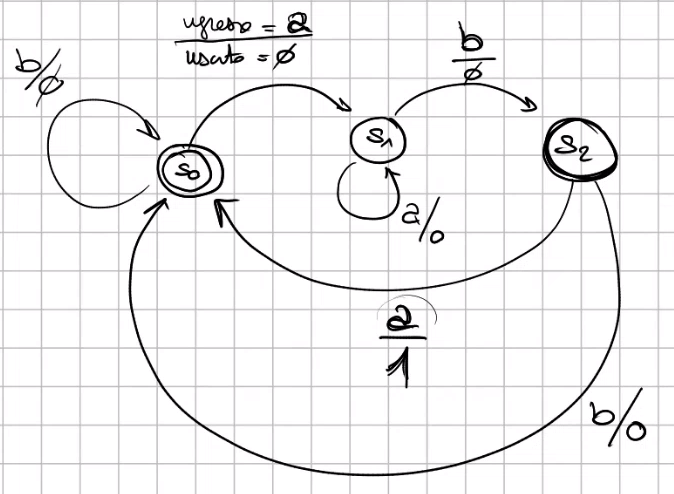 ingresso = a
uscita = 0
b/0
b
0
S0
S1
S2
a/0
a
1
b/0